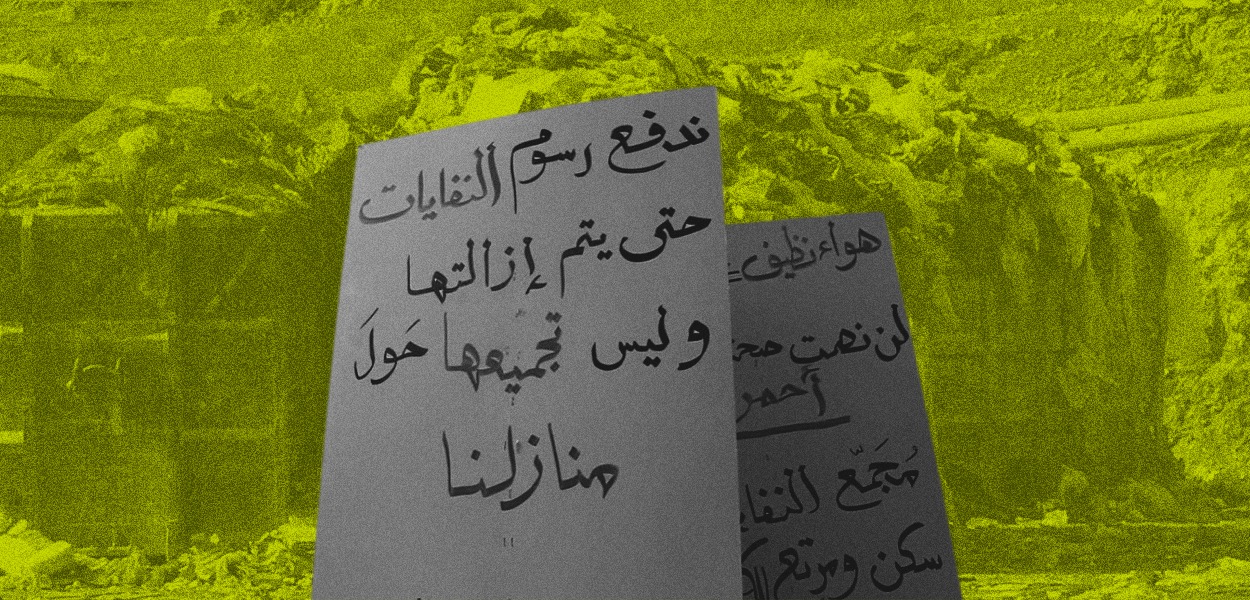 ندفع رسوم النفايات
حتى يتم إزالتها
وليس تجميعها حَولَ
منازلنا
هواء نظيف
لن نصمت
أحمر
مُجَمّع
سكن ومرتع